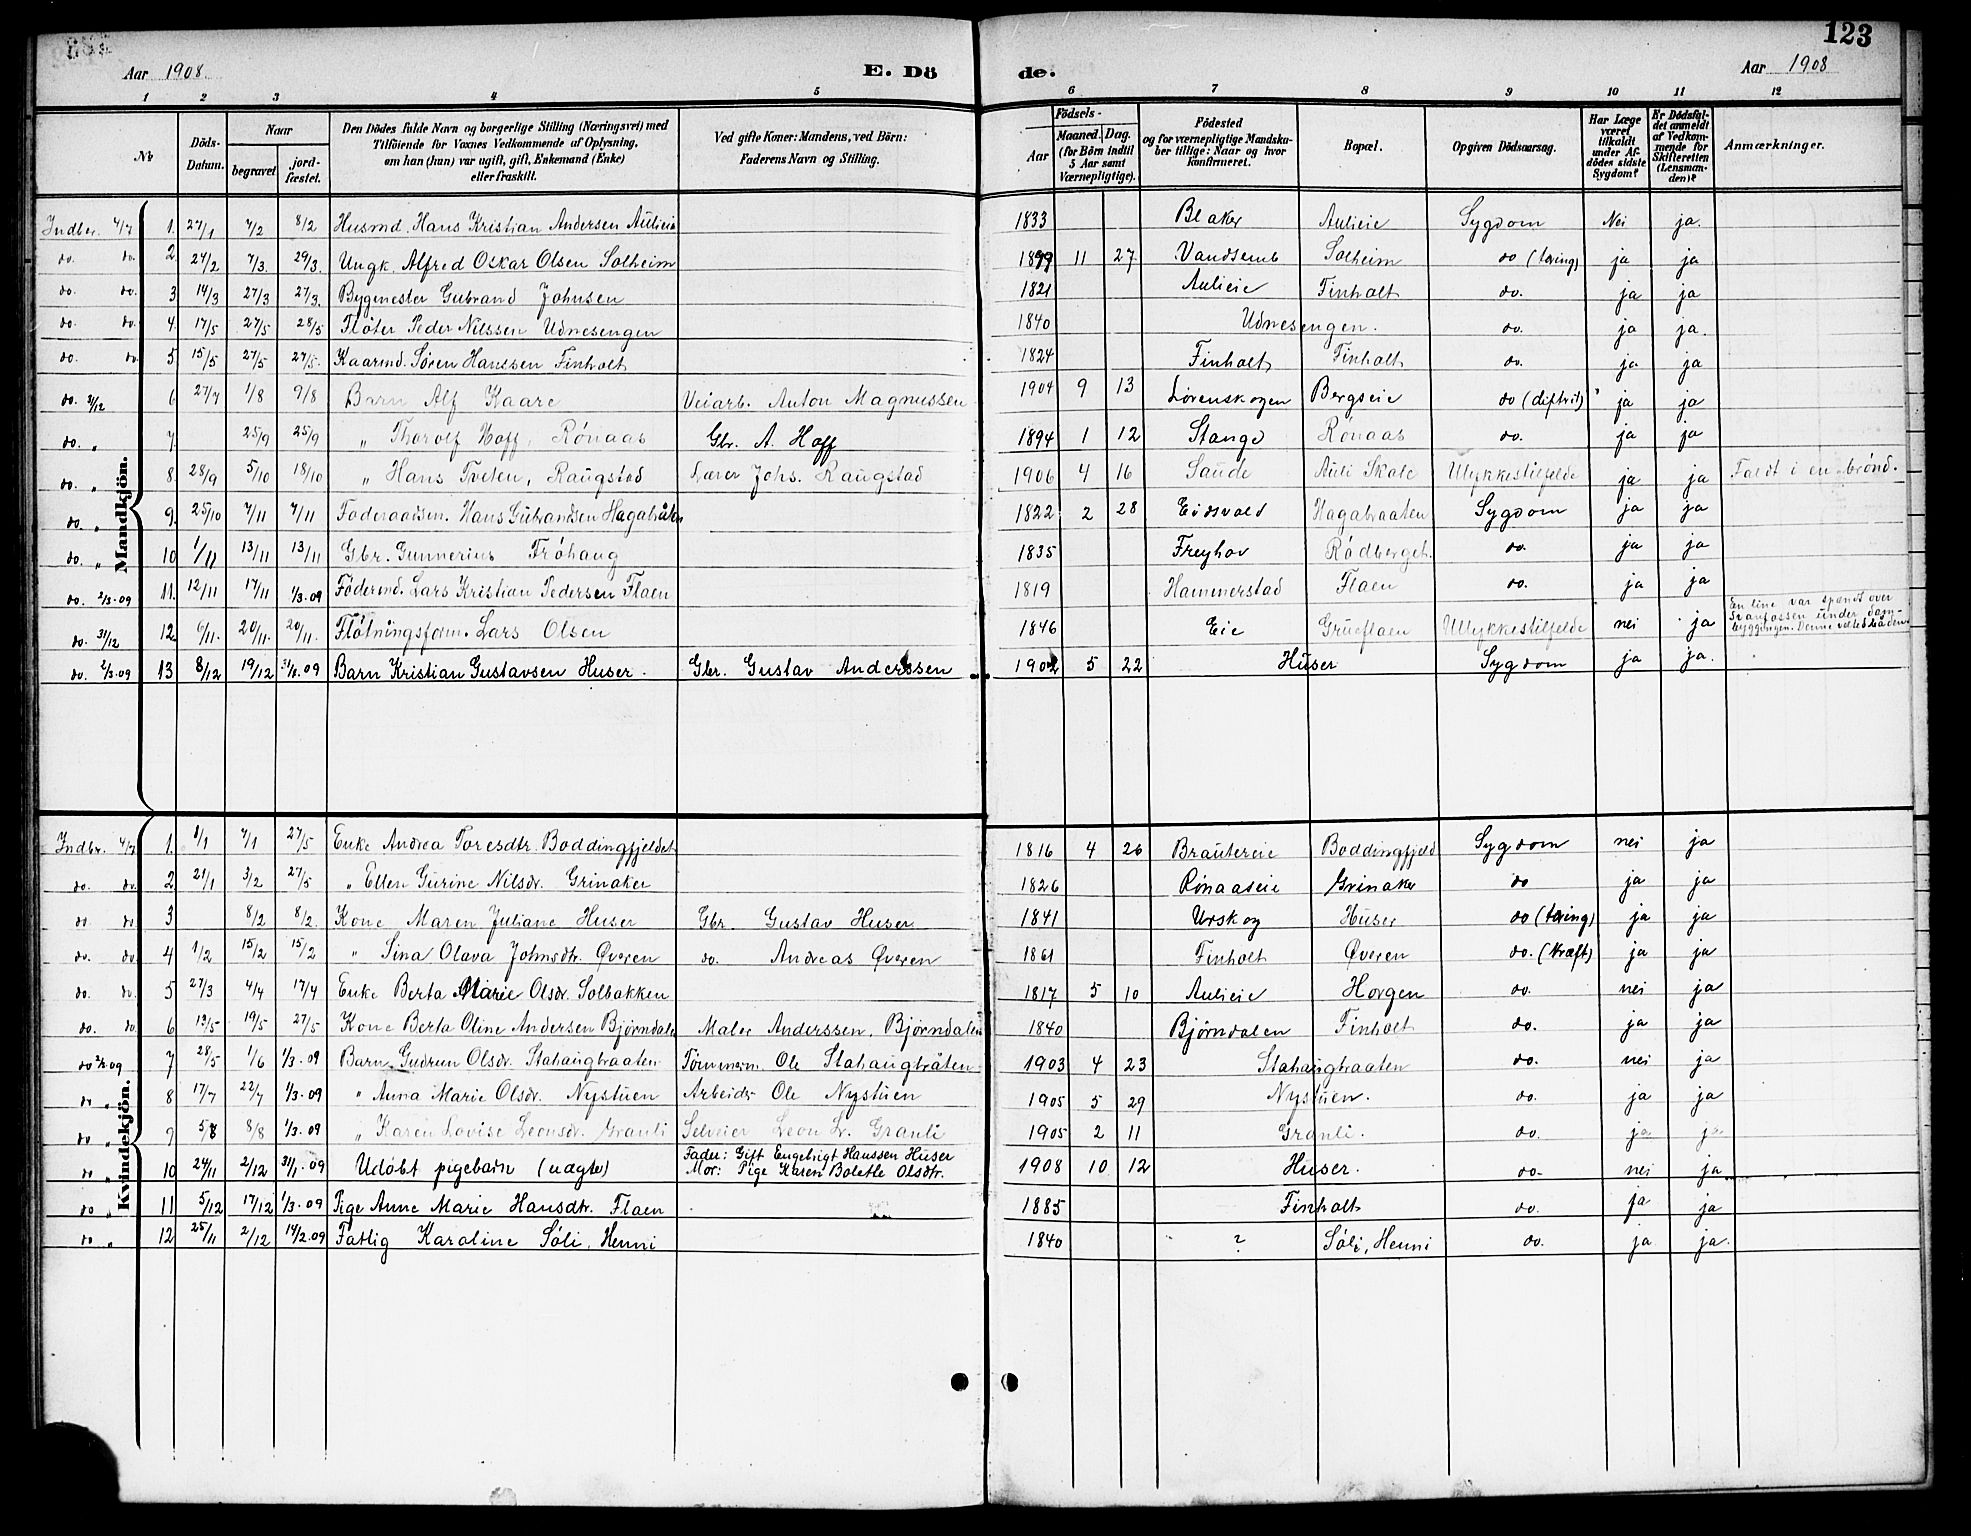 123
Aar 1908. E. Dö de. Aar 1908
1 2 3 4 5 6 7 8 9 10 11 12
No
Döds-Datum.
Naar
begravet
jord-fæstet.
Den Dödes fulde Navn og borgerlige Stilling (Næringsvei) med
Tilföiende for Voxnes Vedkommende af Oplysning,
om han (hun) var ugift, gift, Enkemand (Enke)
eller fraskilt.
Ved gifte Koner: Mandens, ved Börn:
Faderens Navn og Stilling.
Födsels-
Aar
Maaned. Dag.
(for Börn indtil
5 Aar samt
Værnepligtige).
Födested
og for værnepligtige Mandskaber tillige: Naar og hvor
konfirmeret.
Bopæl.
Opgiven Dödsaarsag.
Har Læge
været
tilkaldt
under Afdödes sidste
Sygdom?
Er Dödsfaldet anmeldt
af Vedkommende for
Skifteretten
(Lensmanden)?
Anmærkninger.
Mandkjön.
Indber. 4/7 1. 27/1 7/2 8/2 Husmd. Hans Kristian Andersen Aulieie 1833 Blaker Aulieie Sygdom Nei ja.
do. do. 2 24/2 7/3. 29/3. Ungk. Alfred Oskar Olsen Solheim 1899 11 27 Vandsemb Solheim do (tæring) ja ja
do. do. 3 14/3 27/3 27/3. Bygmester Gubrand Johnsen 1821 Aulieie Finholt do. ja ja
do. do. 4. 17/5 27/5 28/5 Fløter Peder Nilssen Udnesengen 1840 Udnesengen. do. ja ja.
do. do. 5 15/5 27/5 27/5. Kaarmd. Søren Hanssen Finholt 1824 Finholt Finholt do. ja ja
do. 3/12 6 27/7 1/8 9/8 Barn Alf Kaare Veiarb. Anton Magnussen 1904 9 13 Lørenskogen Bergseie do (diftrit) ja ja
do. „ 7. 25/9 25/9 „ Thorolf Hoff, Rønaas Gbr. A. Hoff 1894 1 12 Stange Rønaas do. ja ja
do. „ 8. 28/9 5/10 18/10 „ Hans Tveten, Raugstad Lærer Johs. Raugstad 1906 4 16 Saude Auli Skole Ulykkestilfelde ja ja Faldt i en brønd.
do. „ 9. 25/10 7/11 7/11 Foderaadsm. Hans Gubrandsen Hagabråten 1822 2 28 Eidsvold Hagabraaten Sygdom ja ja
do. „ 10 1/11 13/11 13/11 Gbr. Gunnerius Frøhaug 1835 Freyhov Rødberget. do. ja ja
do. 2/3-09 11. 12/11 17/11 1/3.09 Födermd. Lars Kristian Pedersen Flaen 1819 Hammerstad Flaen do. ja ja
do. 31/12 12 6/11. 20/11. 20/11. Fløtningsform. Lars Olsen 1846 Eie Grueflaen Ulykkestilfelde nei ja En line var spendt over Svanfossen under dambyggingen. Denne veltet båden.
do. 2/3-09 13 8/12 19/12 31/1.09 Barn Kristian Gustavsen Huser. Gbr. Gustav Anderssen 1902 5 22 Huser Sygdom ja ja.
Kvindekjön.
Indbr. 4/7 1. 1/1 7/1 27/5 Enke Andrea Toresdtr. Boddingfjeldet 1816 4 26 Brautereie Boddingfjeld Sygdom nei ja
do. do. 2 21/1 3/2 27/5 „ Ellen Gurine Nilsdr. Grinaker 1826 Rønaaseie Grinaker do ja ja
do do 3 8/2 8/2. Kone Maren Juliane Huser Gbr. Gustav Huser 1841 Urskog Huser do (tæring) ja ja
do. do. 4 1/2 15/2 15/2 „ Sina Olava Johnsdtr. Øveren do. Andreas Øveren 1861 Finholt Øveren do. (kræft) ja ja
do. do. 5 27/3 4/4 17/4 Enke Berta Marie Olsdr. Solbakken 1817 5 10 Aulieie Horgen do. nei ja
do. do. 6 13/5 19/5 27/5 Kone Berta Oline Andersen Bjørndalen Maler Anderssen, Bjørndalen 1840 Bjørndalen Finholt do. ja ja
do 2/3-09 7 28/5 1/6 1/3.09 Barn Gudrun Olsdr. Stahaugbraaten Tømmerm. Ole Stahaugbråten 1903 4 23 Stahaugbraaten do. nei ja
do „ 8 17/7 22/7 1/3-09 „ Anna Marie Olsdr. Nystuen Arbeidr Ole Nystuen 1905 5 29 Nystuen. do. ja ja
do „ 9 5/8 8/8 1/3.09 „ Karen Lovise Leonsdr. Granli Selveier Leon Granli 1905 2 11 Granli. do. ja ja
do „ 10 24/11 2/12 31/1-09 Udøbt pigebarn (uægte) Fader: Gift Engebrigt Hanssen Huser
Mor: Pige Karen Bolette Olsdtr. 1908 10 12 Huser. do- nei ja
do „ 11 5/12 17/12 1/3-09 Pige Anne Marie Hansdtr. Flaen 1885 Finholt do. ja ja
do „ 12 25/11 2/12 14/2.09 Fattig Karoline Søli, Henni 1840 ? Søli, Henni do. ja ja.